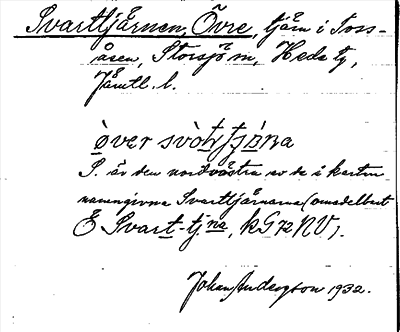 Svarttjärnen, Övre, tjärn i Tors-
åsen, Storsjö sn, Heds tg,
Jämtl. l.
över svòt̠tjò̠na
S. är den nordvästra av de i kartan
namngivna Svarttjärnarna (omedelbart
E Svart-tj:na, kG72NV).
Johan Anderson 1932.